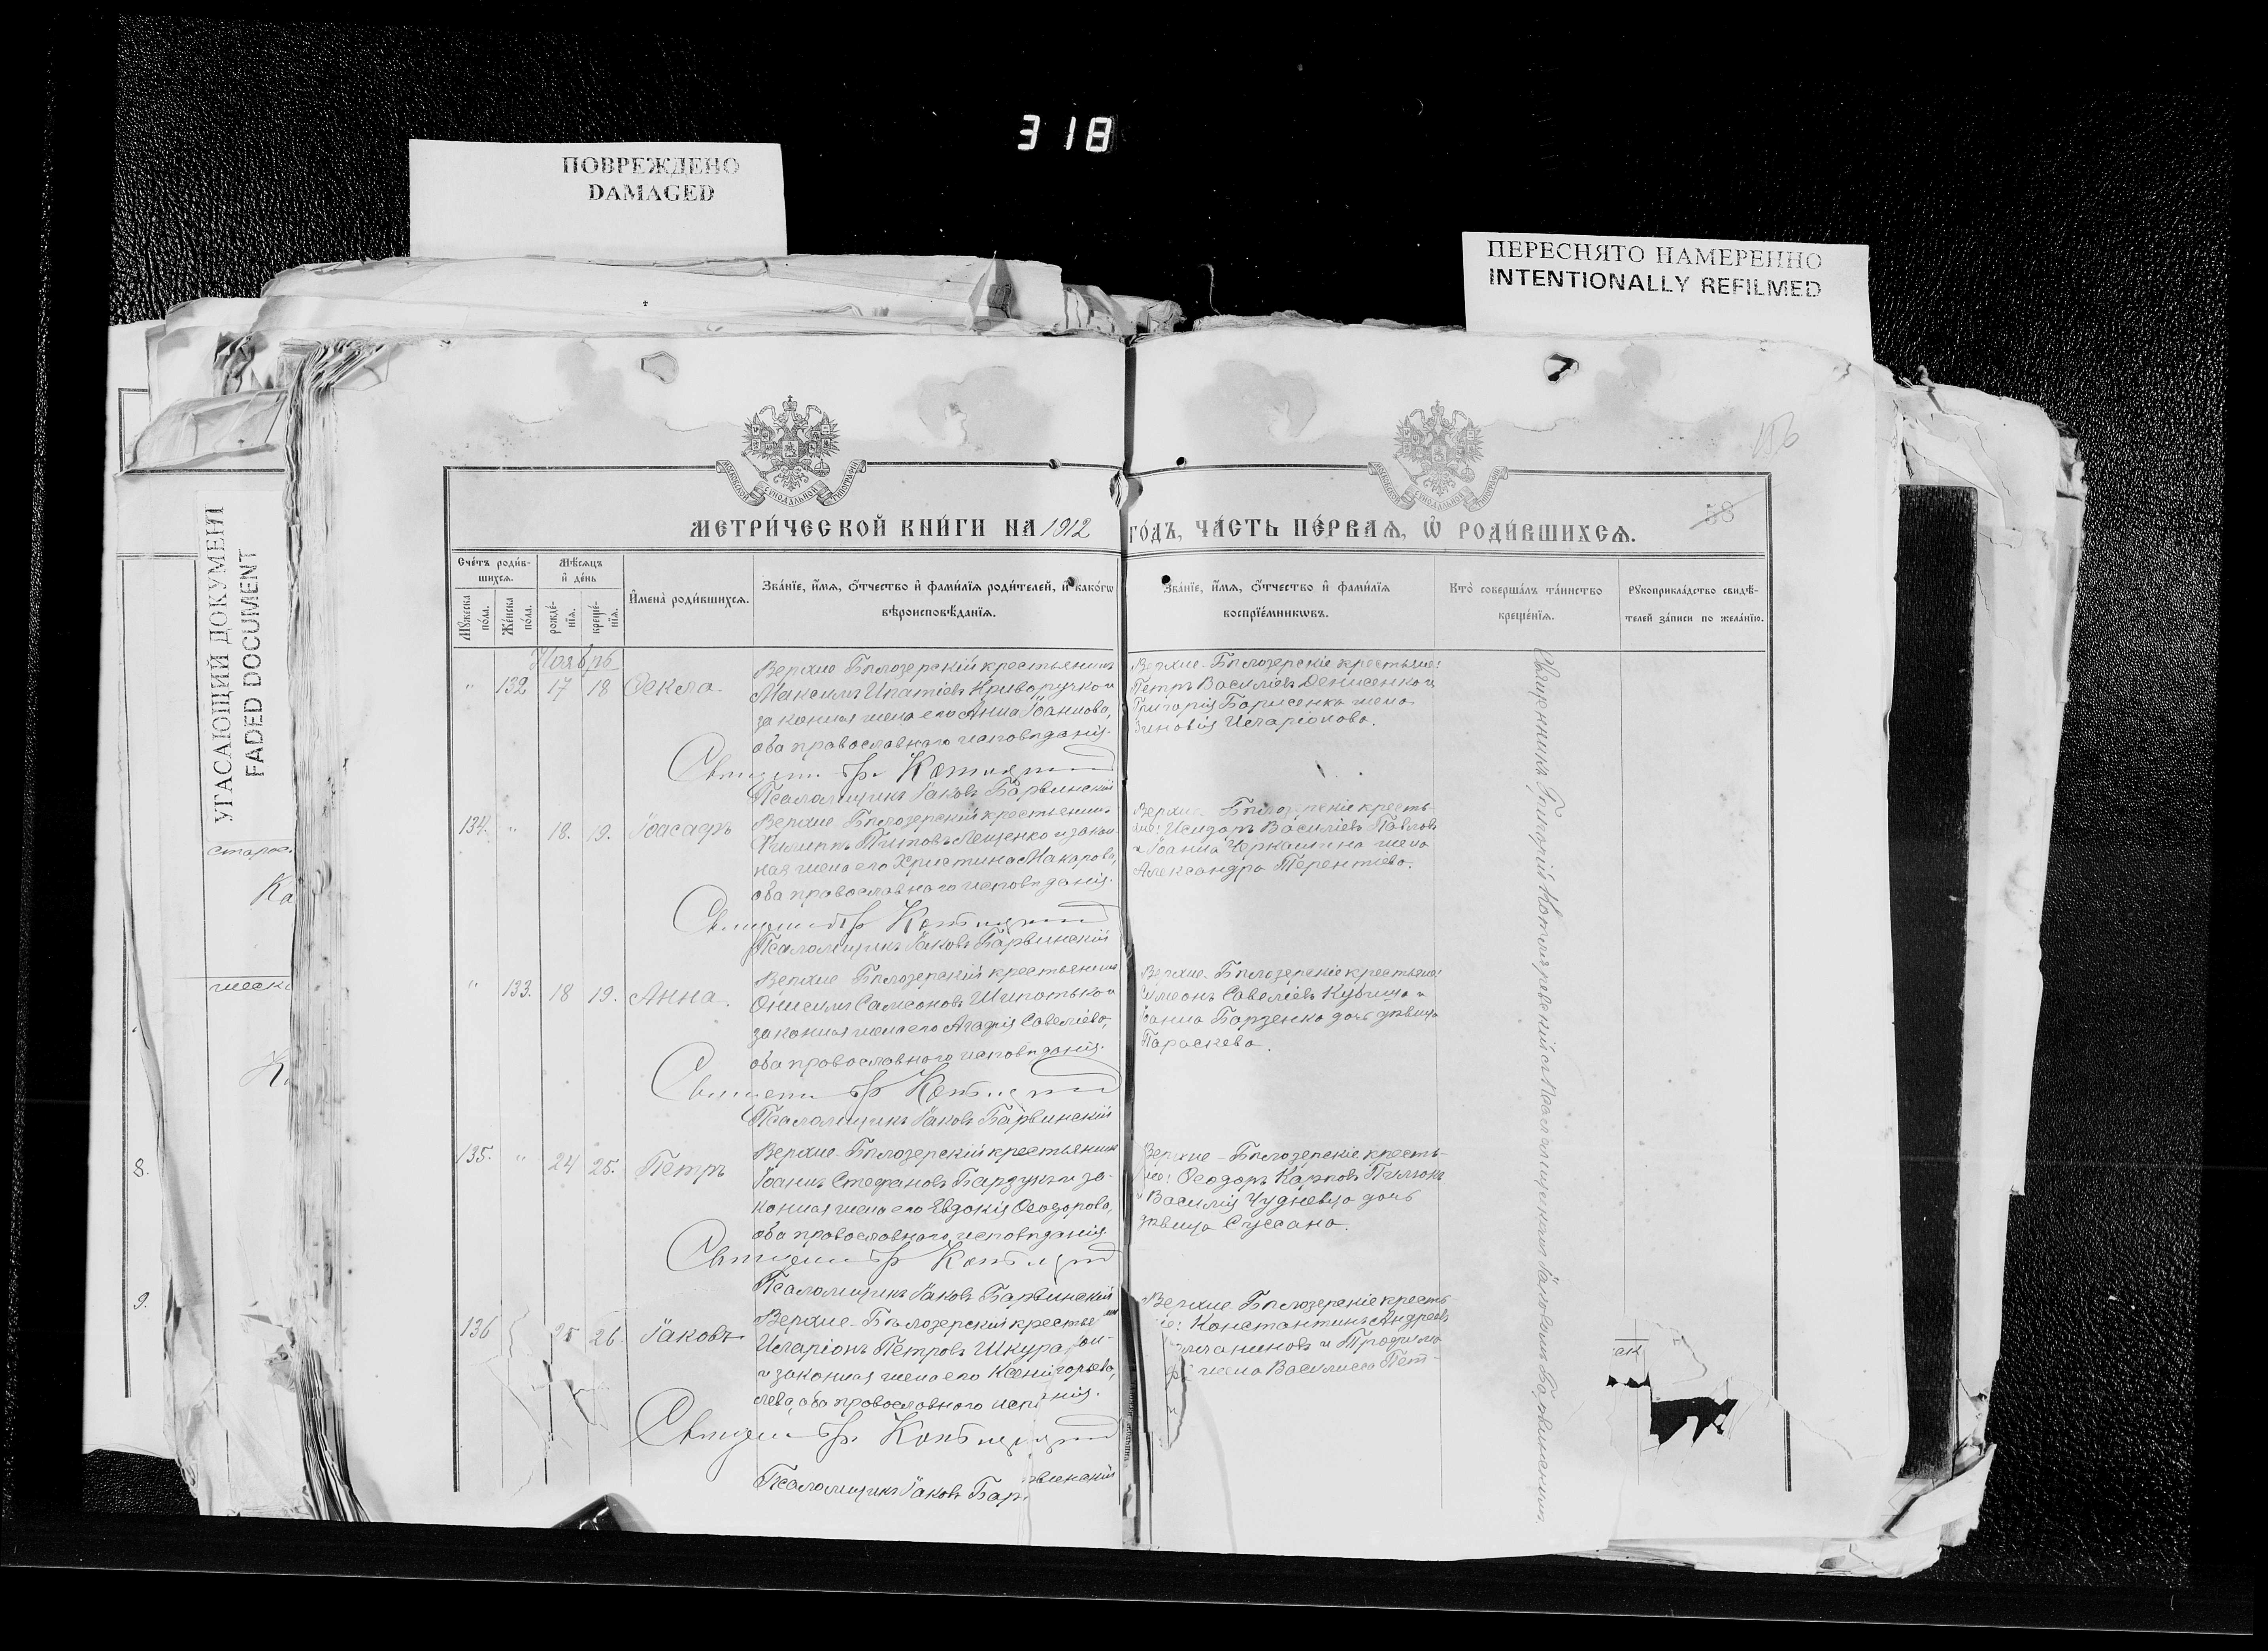 318
ПОВРЕЖДЕНО
DAMAGED
ПЕРЕСНЯТО НАМЕРЕННО
INTENTIONALLY REFILMED
УГАСАЮЩИЙ ДОКУМЕНТ
FADED DOCUMENT
МОСКОВСКОЙ СѴНОДАЛЬНОЙ ТИПОГРАФІИ
МОСКОВСКОЙ СѴНОДАЛЬНОЙ ТИПОГРАФІИ
156
38
МЕТРИ́ЧЕСКОЙ КНИ́ГИ НА 1912 ГО́ДЪ, ЧА́СТЬ ПЕ́РВАѦ, Ѡ҆ РОДИ́ВШИХСѦ.
Сче́тъ роди́в-
шихсѧ.
Мꙋ́жеска по́ла.
Же́нска по́ла.
Мѣ́сѧцъ
и҆ де́нь
рожде́-
нїѧ.
креще́-
нїѧ.
И҆мена̀ роди́вшихсѧ.
Зва́нїе, и҆́мѧ, ѻ҆́тчество и҆ фами́лїѧ роди́телей, и҆ како́гѡ
вѣроисповѣ́данїѧ.
Зва́нїе, и҆́мѧ, ѻ҆́тчество и҆ фами́лїѧ
воспрїе́мникѡвъ.
Кто̀ соверша́лъ та́инство
креще́нїѧ.
Рꙋкоприкла́дство свидѣ́-
телей за́писи по жела́нїю.
Ноябрь
" 132 17 18 Ѳекла.
Верхне Бѣлозерскій крестьянинъ
Максимъ Ипатіевъ Криворучко и
законная жена его Анна Іоаннова,
оба православнаго исповѣданія.
Псаломщикъ Іаковъ Барвинскій
Верхне-Бѣлозерскіе крестьяне:
Петръ Василіевъ Денисенко и
Григорія Борисенка жена
Зиновія Иларіонова.
134. " 18. 19. Іоасафъ
Верхне Бѣлозерскій крестьянинъ
Филиппъ Титовъ Лещенко и закон
ная жена его Христина Макарова,
оба православнаго исповѣданія.
Псаломщикъ Іаковъ Барвинскій
Верхне Бѣлозерскіе кресть-
яне: Исидоръ Василіевъ Павловъ
и Іоанна Черкашина жена
Александра Терентіева.
" 133. 18 19. Анна.
Верхне Бѣлозерскій крестьянинъ
Онисимъ Самсоновъ Шипотько и
законная жена его Агафія Савеліева,
оба православнаго исповѣданія.
Псаломщикъ Іаковъ Барвинскій
Верхне-Бѣлозерскіе крестьяне:
Симеонъ Савеліевъ Кубица и
Іоанна Борзенко дочь дѣвица
Параскева.
135. " 24 25. Петръ
Верхне-Бѣлозерскій крестьянинъ
Іоаннъ Стефановъ Бардукъ и за-
конная жена его Евдокія Ѳеодорова,
оба православнаго исповѣданія.
Псаломщикъ Іаковъ Барвинскій
Верхне-Бѣлозерскіе кресть-
яне: Ѳеодоръ Карповъ
и Василія Чудневца дочь
дѣвица Сусанна.
136 25 26. Іаковъ
Верхне-Бѣлозерскій крестьянинъ
Иларіонъ Петровъ Шкура
и законная жена его Ксенія
оба православнаго
Псаломщикъ Іаковъ Барвинскій
Верхне Бѣлозерскіе кресть-
Константинъ Андреевъ
и Трофима
жена Василисса Пет-
Священникъ Григорій Котляревскій съ Псаломщикомъ Іаковомъ Барвинскимъ.
старос
Ка
ческ
К
8.
9.